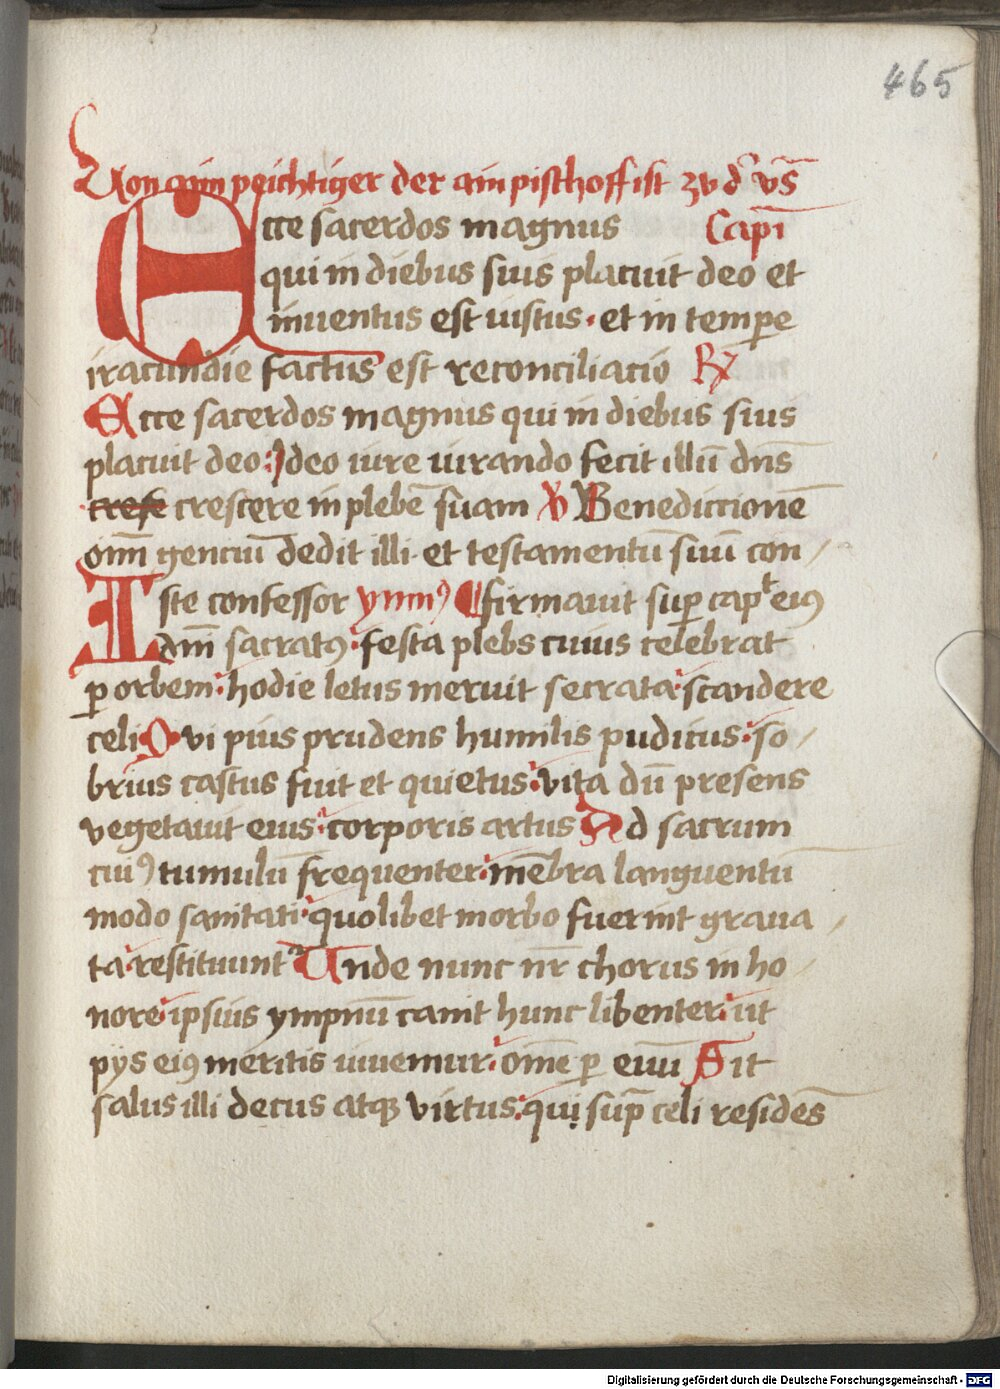 465
Von aim peichtiger der ain pisthoff ist zv d᷑ vs̄
Ecce sacerdos magnus Capi̅
qui in diebus suis placuit deo et
inuentus est iustus · et in tempe
iracundie factus est reconciliacio ℟
Ecce sacerdos magnus qui in diebus suis
placuit deo : Ideo iure iurando fecit illu̅ dn̅s
crese crescere in plebe̅ suam ℣ Benediccione̅
om̅ genciu̅ dedit illi et testamentu̅ suu̅ con /
Iste confessor ymnꝰ ¶ firmauit suꝑ capᵗ eiꝰ
dm̅ sacratꝰ · festa plebs cuius celebrat
ꝑ orbem : hodie letus meruit secrata : scandere
celi Qvi pius prudens humilis pudicus : so /
brius castus fuit et quietus : vita du̅ presens
vegetauit eius : corporis artus Ad sacrum
cuiꝰ tumulu̅ frequenter : me̅bra languentu̅
modo sanitati : quolibet morbo fuerint graua /
ta : restituunt᷑ Unde nunc nr̅ chorus in ho /
nore : ipsius ympnu̅ canit hunc libenter : ut
pijs eiꝰ meritis iuuemur : om̅e ꝑ euu̅ Sit
salus illi decus atqꝫ virtus : qui sup̅ celi residēs
Digitalisierung gefördert durch die Deutsche Forschungsgemeinschaft - DFG